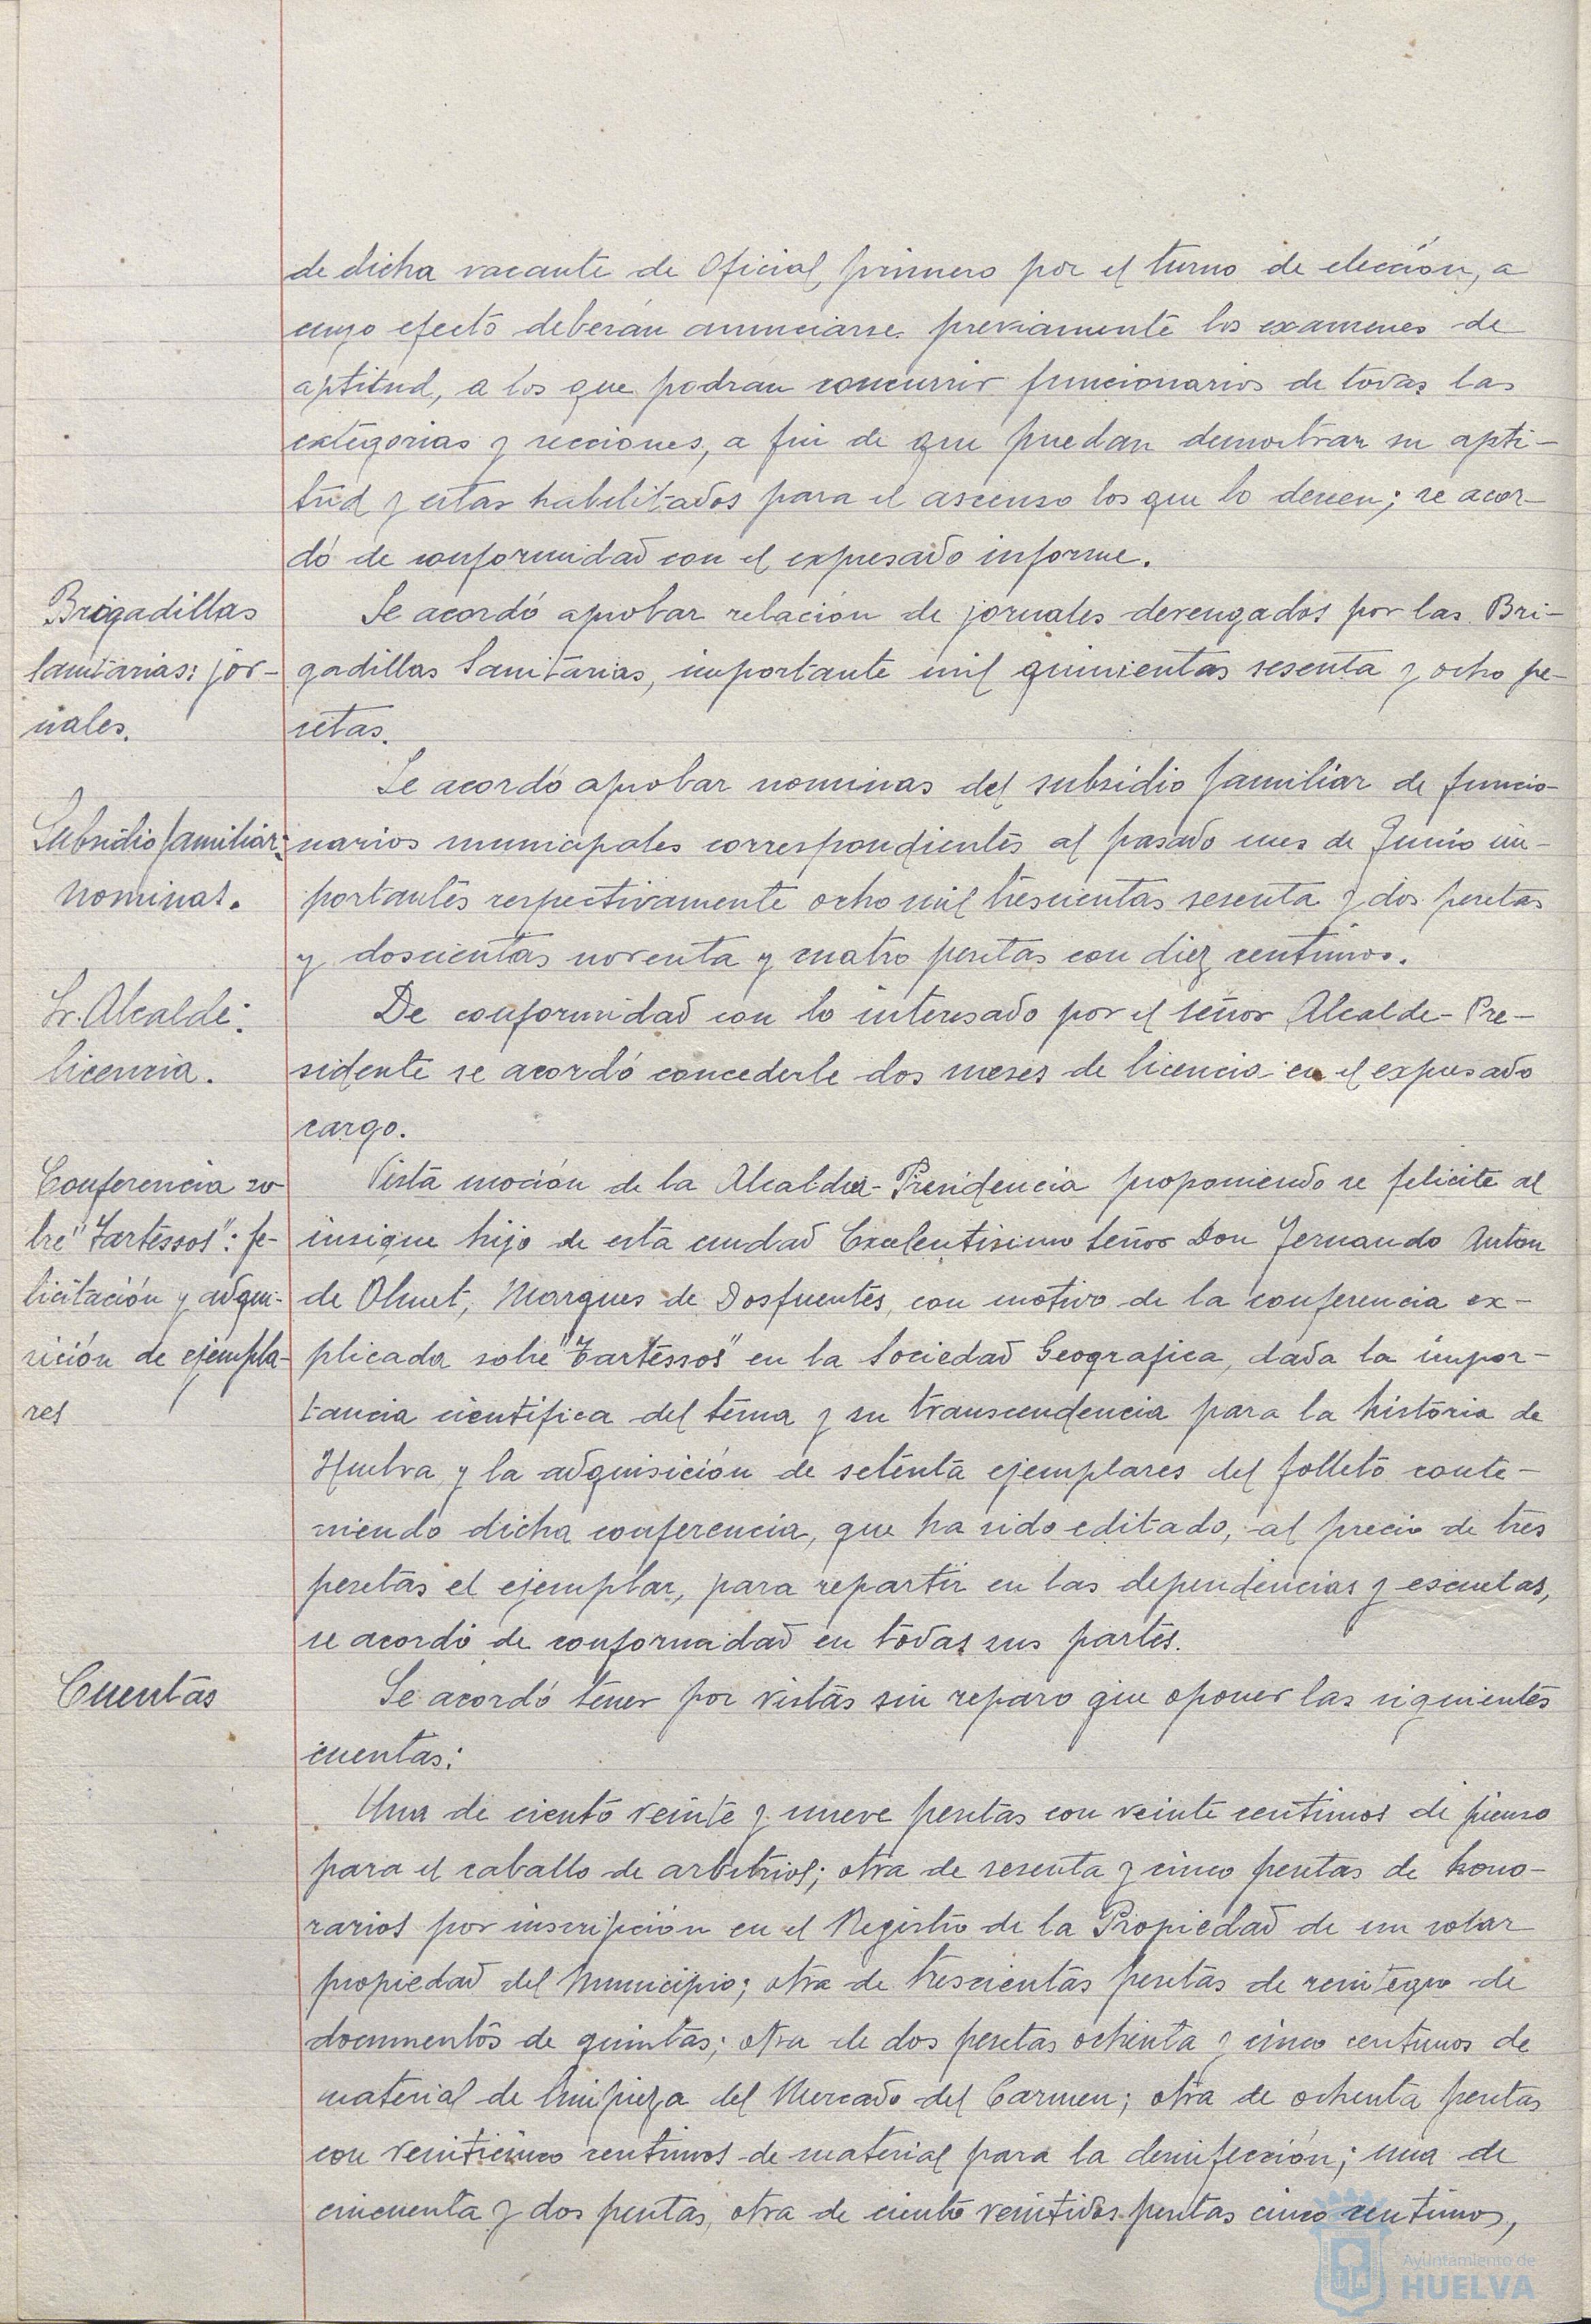 de dicha vacante de Oficial primero por el turno de elección, a
cuyo efecto deberán anunciarse previamente los examenes de
aptitud, a los que podran concurrir funcionarios de todas las
categorias y secciones, a fin de que puedan demostrar su apti-
tud y estar habilitados para el ascenso los que lo deseen; se acor-
dó de conformidad con el expresado informe.
Brigadillas
Sanitarias: jor-
nales.
Se acordó aprobar relación de jornales devengados por las Bri-
gadillas Sanitarias, importante mil quinientas sesenta y ocho pe-
setas.
Subsidio familiar:
nominas.
Se acordó aprobar nominas del subsidio familiar de funcio-
narios municipales correspondientes al pasado mes de Junio im-
portantes respectivamente ocho mil trescientas sesenta y dos pesetas
y doscientas noventa y cuatro pesetas con diez centimos.
Sr. Alcalde:
licencia.
De conformidad con lo interesado por el señor Alcalde-Pre-
sidente se acordó concederle dos meses de licencia en el expresado
cargo.
Conferencia so-
bre "Tartéssos": fe-
licitación y adqui-
sición de ejempla-
res
Vista moción de la Alcaldia-Presidencia proponiendo se felicite al
insigne hijo de esta ciudad Excelentisimo señor Don Fernando Anton
de Olmet, Marques de Dosfuentes, con motivo de la conferencia ex-
plicada sobre "Tartéssos" en la Sociedad Geografica, dada la impor-
tancia cientifica del tema y su transcendencia para la historia de
Huelva y la adquisición de setenta ejemplares del folleto conte-
niendo dicha conferencia, que ha sido editado, al precio de tres
pesetas el ejemplar, para repartir en las dependencias y escuelas,
se acordó de conformidad en todas sus partes.
Cuentas
Se acordó tener por vistas sin reparo que oponer las siguientes
cuentas:
Una de ciento veinte y nueve pesetas con veinte centimos de pienso
para el caballo de arbitrios; otra de sesenta y cinco pesetas de hono-
rarios por inscripción en el Registro de la Propiedad de un solar
propiedad del Municipio; otra de trescientas pesetas de reintegro de
documentos de quintas; otra de dos pesetas ochenta y cinco centimos de
material de limpieza del Mercado del Carmen; otra de ochenta pesetas
con veinticinco centimos de material para la desinfección; una de
cincuenta y dos pesetas, otra de ciento veintidos pesetas cinco centimos,
Ayuntamiento de
HUELVA